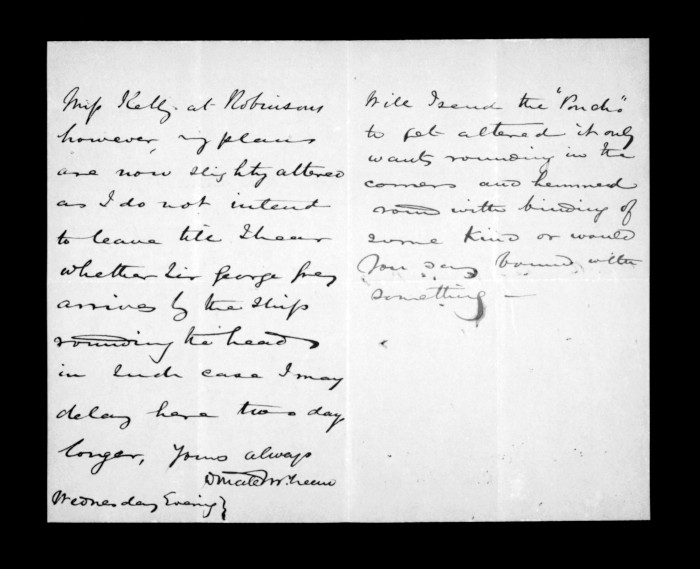 Miss Kelly at Robinsons
however, my plans
are now slighty altered
as I do not intend
to leave till I hear
whether Sir George Grey
arrives by the ship
rounding the heads
in such case I may
delay here two a day
longer, Yours always
Donald McLean
Wednesday Evening}
Will I send the "Poncho"
to get altered it only
wants rounding in the
corners and hemmed
round with binding of
some kind or would
you say bound with
something —